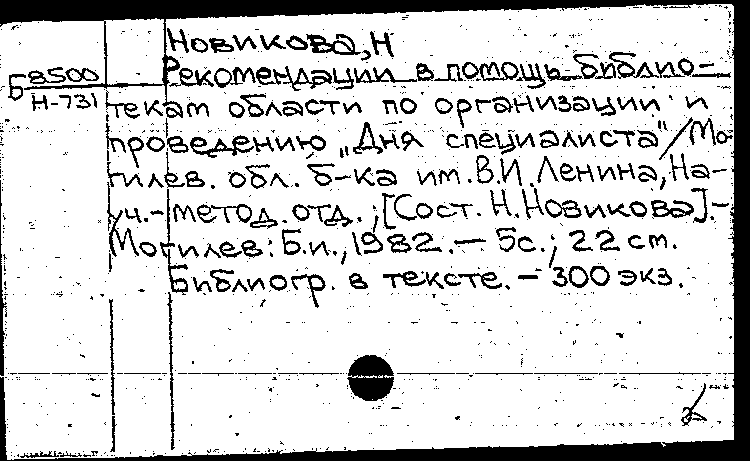 Новикова, Н
Б8500 Рекомендации в помощь библио-
Н-731 текам области по организации и
проведению „Дня специалиста"/Мо-
гилев. обл. б-ка им. В.И. Ленина, На-
уч.-метод. отд.; [Сост. Н. Новикова].-
Могилев: Б.и., 1982. — 5с.; 22 см.
Библиогр. в тексте. — 300 экз.